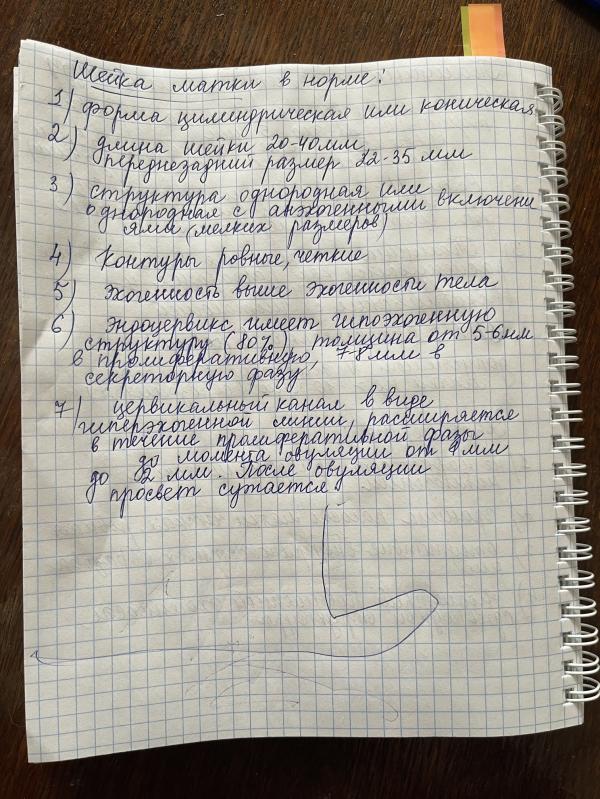 Шейка матки в норме:
1) форма цилиндрическая или коническая
2) длина шейки 20-40мм
переднезадний размер 22-35 мм
3) структура однородная или
однородная с анэхогенными включени
ями (мелких размеров)
4) Контуры ровные, четкие
5) Эхогенность выше эхогенности тела
6) Эндоцервикс имеет гипоэхогенную
структуру (80%), толщина от 5-6мм
в пролиферативную, 7-8мм в
секреторную фазу
7) цервикальный канал в виде
гиперэхогенной линии, расширяется
в течение пролиферативной фазы
до момента овуляции от 1 мм
до 2 мм. После овуляции
просвет сужается